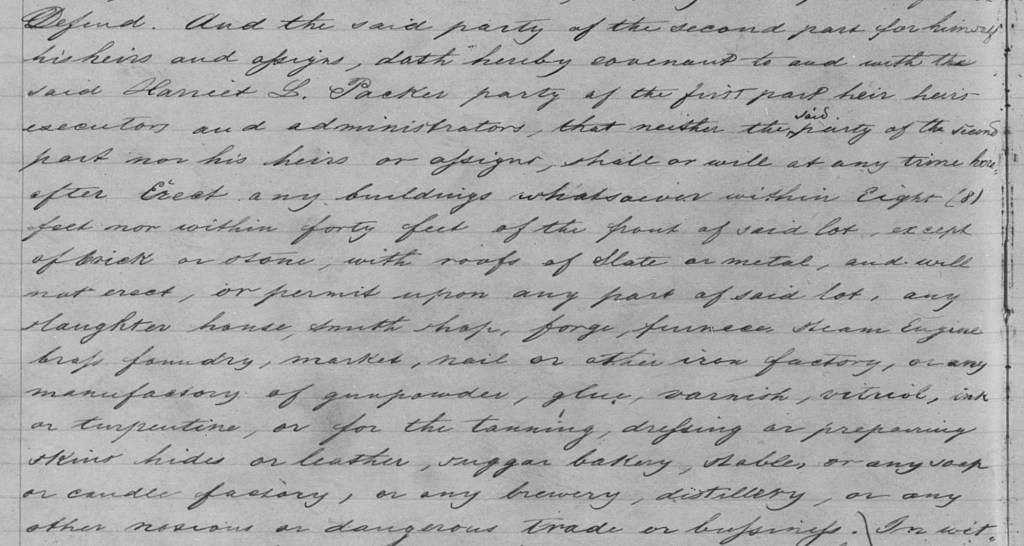 Defend. And the said party of the second part for himself
his heirs and assigns, doth hereby covenant to and with the
said Harriet L. Packer party of the first part heir heirs
executors and administrators, that neither the said party of the second
part nor his heirs or assigns, shall or will at any time here-
after Erect any buildings whatsoever within Eight (8)
feet nor within forty feet of the front of said lot, except
of brick or stone, with roofs of Slate or metal, and will
not erect, or permit upon any part of said lot, any
slaughter house, smith shop, forge, furnace, steam Engine
brass foundry, market, nail or other iron factory, or any
manufactory of gunpowder, glue, varnish, vitriol, ink
or turpentine, or for the tanning, dressing or prepairing
skins hides or leather, suggar bakery, stables, or any soap
or candle factory, or any brewery, distillery, or any
other noxious or dangerous trade or bussiness. In wit-